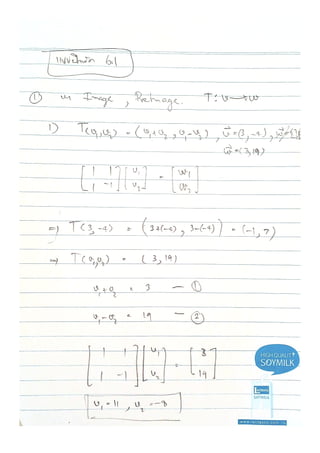 แบบฝึกหัด 6.1
① หา Image, Preimage. T: V → W
1) T(v₁,v₂) = (v₁+v₂, v₁-v₂), v⃗=(3,-4),
w⃗=(3,19)
[1 1; 1 -1] [v₁; v₂] = [w₁; w₂]
⇒ T(3,-4) = (3+(-4), 3-(-4)) = (-1, 7)
⇒ T(v₁,v₂) = (3, 19)
v₁+v₂ = 3 — ①
v₁-v₂ = 19 — ②
[1 1; 1 -1] [v₁; v₂] = [3; 19]
v₁=11, v₂=-8
HIGH QUALITY
SOYMILK